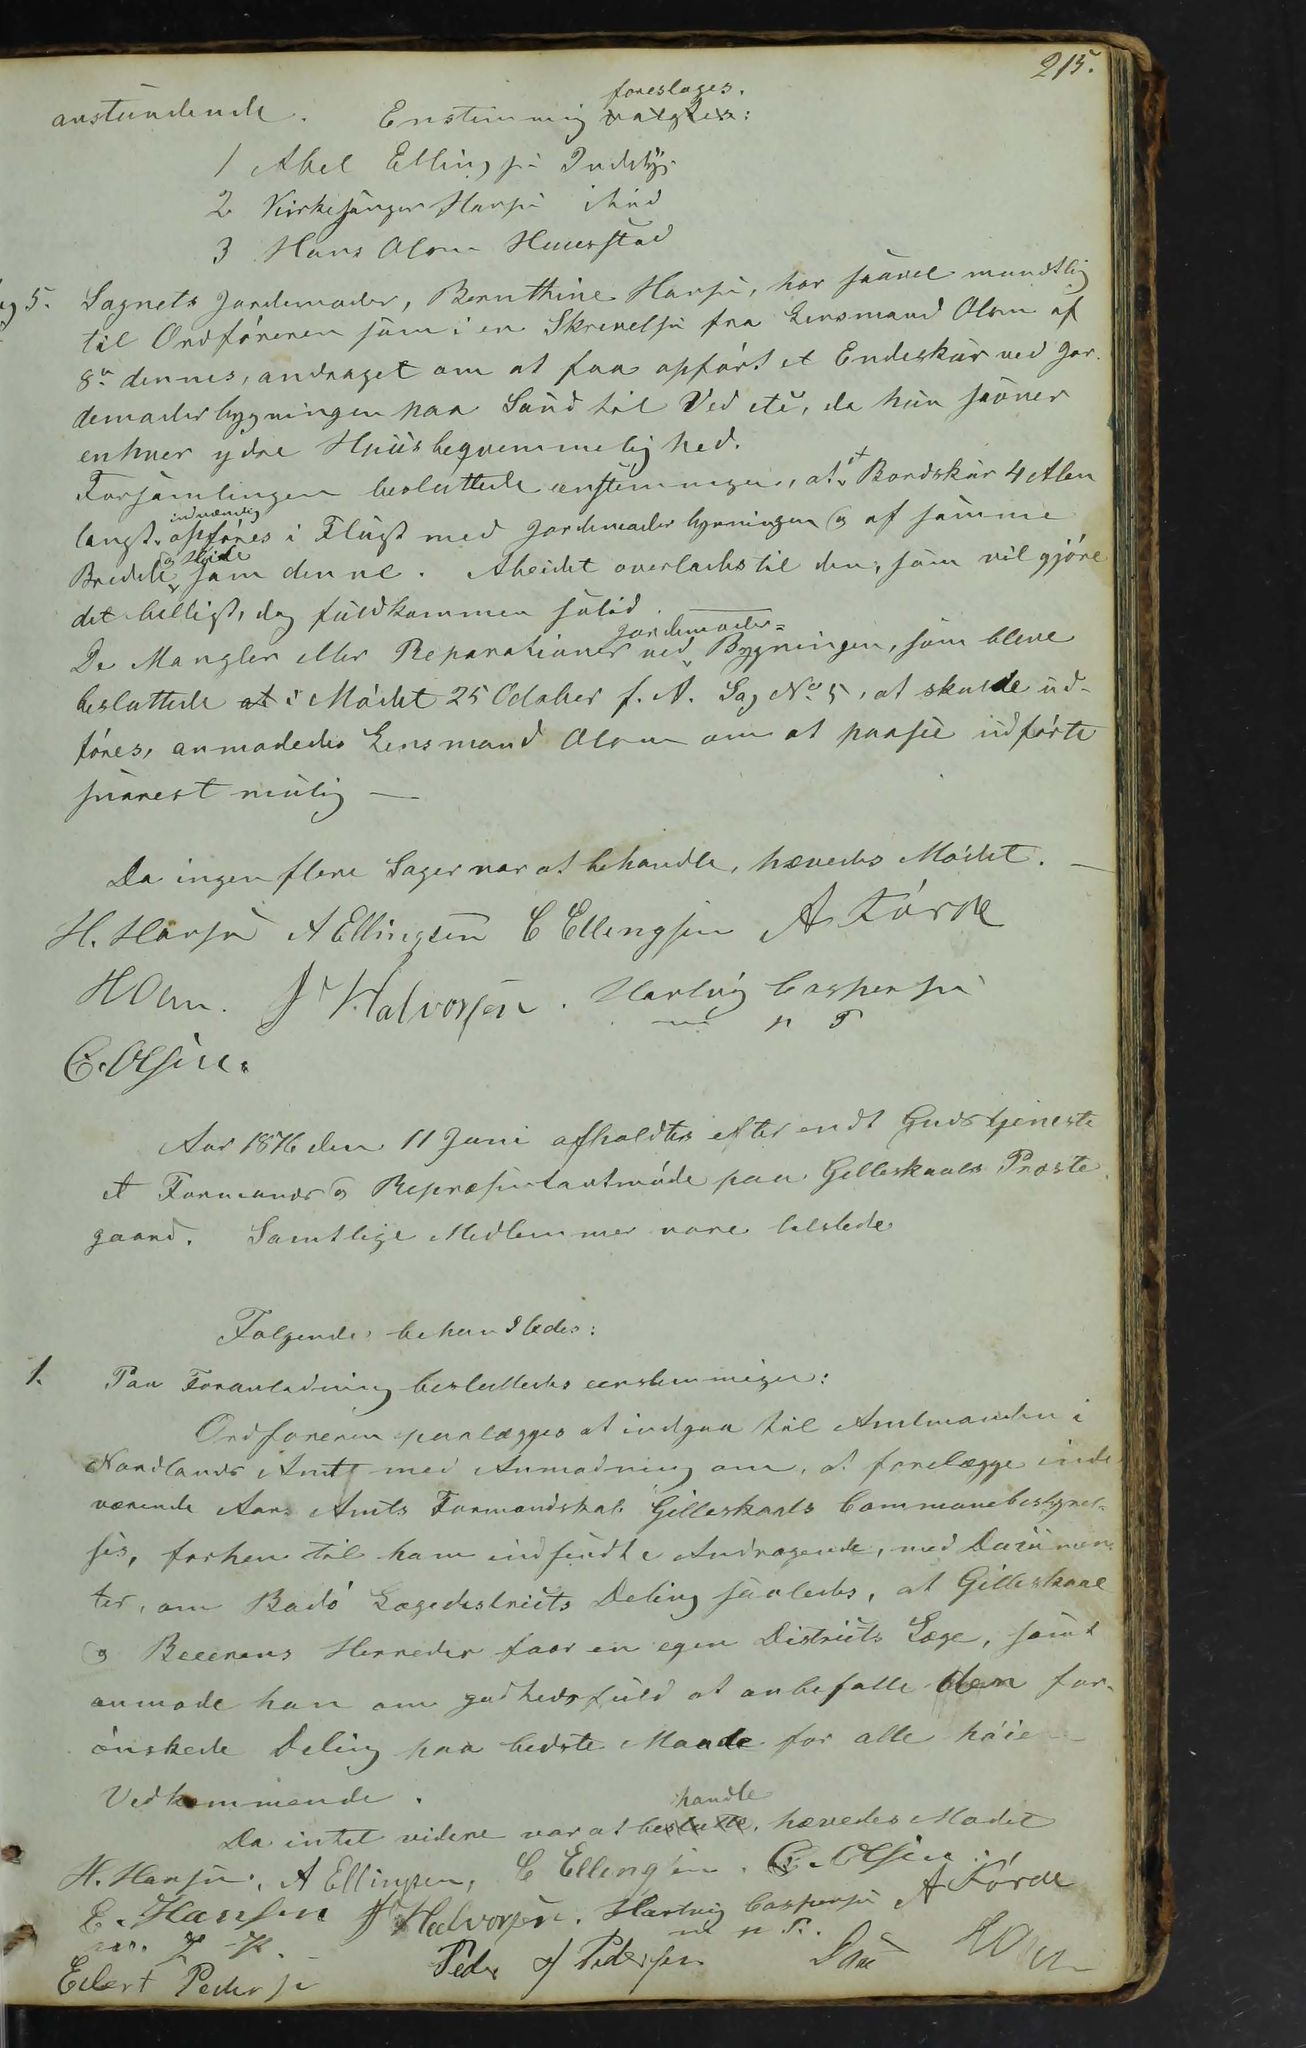 215.
foreslages.
anstundende. Enstemmig valgtes:
1 Abel Ellingsen Indyr
2 Kirkesanger Hansen ibid
3 Hans Olsen
Sag 5. Sognets Jordemoder, Bernthine Hansen, har saavel mundtlig
til Ordføreren som i en Skrivelse fra Lensmand Olsen af
8de dennes, andraget om at faa opført et Endeskur ved Jor-
demoderbygningen paa Sund til Ved etc, da hun savner
enhver ydre Huusbeqvemmelighed.
Forsamlingen besluttede enstemmigen, at et Bordskur 4 Alen
langt indvendig opføres i Flugt med Jordemoderbygningen og af samme
Bredde og Høide som denne. Abeidet overlades til den, som vil gjøre
det billigst, dog fuldkommen solid.
De Mangler eller Reparationer ved Jordemoder- Bygningen, som bleve
besluttede at i Mødet 25 October f. A. Sag No 5, at skulde ud-
føres, anmodedes Lensmand Olsen om at paasee udførte
snarest mulig —
Da ingen flere Sager var at behandle, hævedes Mødet. —
H. Hansen A Ellingsen C Ellingsen A Førde
HOlsen. J Halvorsen. Hartvig Caspersen
m p P
C. Olsen.
Aar 1876 den 11 Juni afholdtes efter endt Gudstjeneste
et Formands og Repræsentantmøde paa Gilleskaals Præste-
gaard. Samtlige Medlemmer vare tilstede
Følgende behandledes:
1. Paa Foranledning besluttedes eenstemmigen:
Ordføreren paalægges at indgaa til Amtmanden i
Nordlands Amt med Anmodning om, at forelægge inde
værende Aars Amts Formandskab Gilleskaals Communebestyrel-
ses, forhen til ham indsendte Andragende, med Documen-
ter, om Bodø Lægedistricts Deling saaledes, at Gilleskaal
og Beierens Herreder faar en egen Districts Læge, samt
anmode han om godhedsfuld at anbefalle den for-
ønskede Deling paa bedste Maade for alle høie
Vedkommende.
Da intet videre var at beslutte handle, hævedes Mødet
H. Hansen. A Ellingsen, C Ellingsen. C. Olsen.
E. Hansen J Halvorsen. Hartvig Caspersen A Førde
m p P.
Eilert Pedersen Peder J Pedersen HOlsen